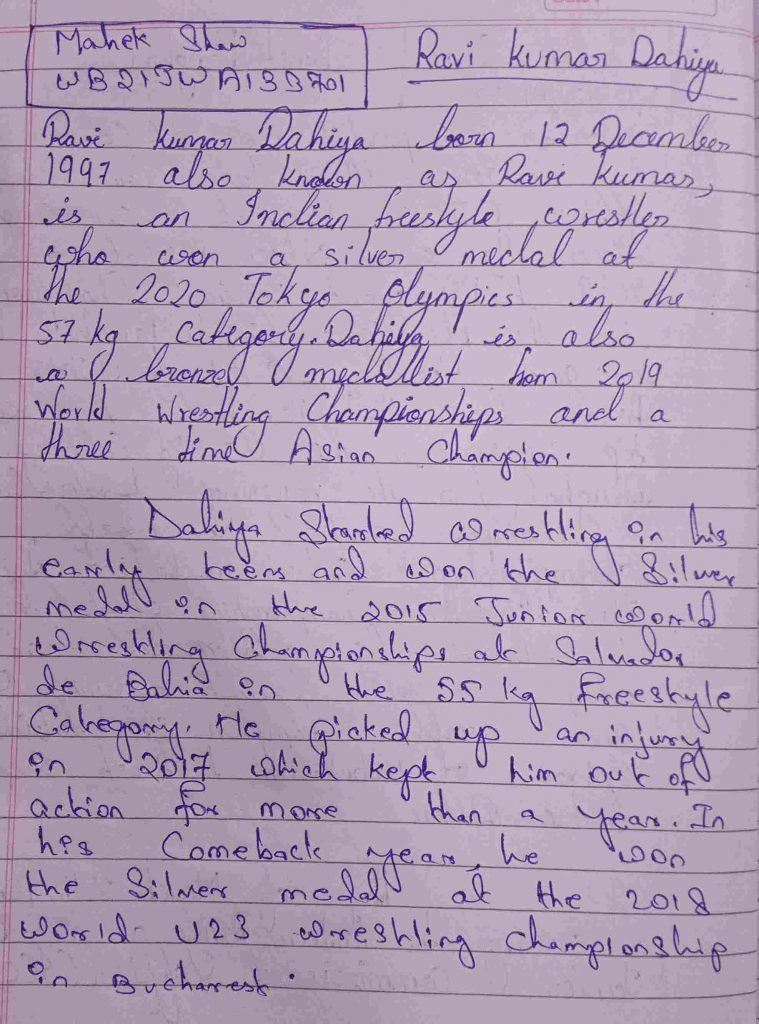 Mahek Shaw
WB21SWA133701
Ravi Kumar Dahiya
Ravi Kumar Dahiya born 12 December
1997 also known as Ravi Kumar,
is an Indian freestyle wrestler
who won a silver medal at
the 2020 Tokyo Olympics in the
57 kg category. Dahiya is also
a bronze medallist from 2019
World Wrestling Championships and a
three time Asian Champion.
Dahiya Started wrestling in his
early teens and won the Silver
medal in the 2015 Junior World
Wrestling Championships at Salvador
de Bahia in the 55 kg freestyle
Category. He picked up an injury
in 2017 which kept him out of
action for more than a year. In
his Comeback year, he won
the Silver medal at the 2018
World U23 wrestling Championship
in Bucharest.